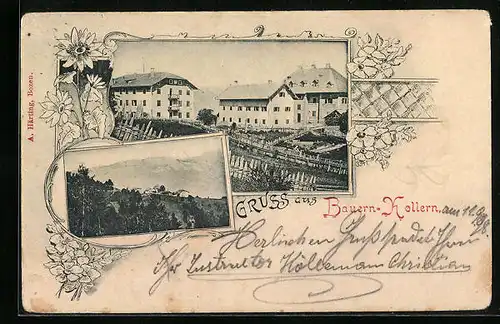 A. Härting, Bozen.
GRUSS aus
Bauern-Kollern,
am 11.
Herzlichen Gruß sendet Ihnen
Ihr Instruktor Hölleman Christian